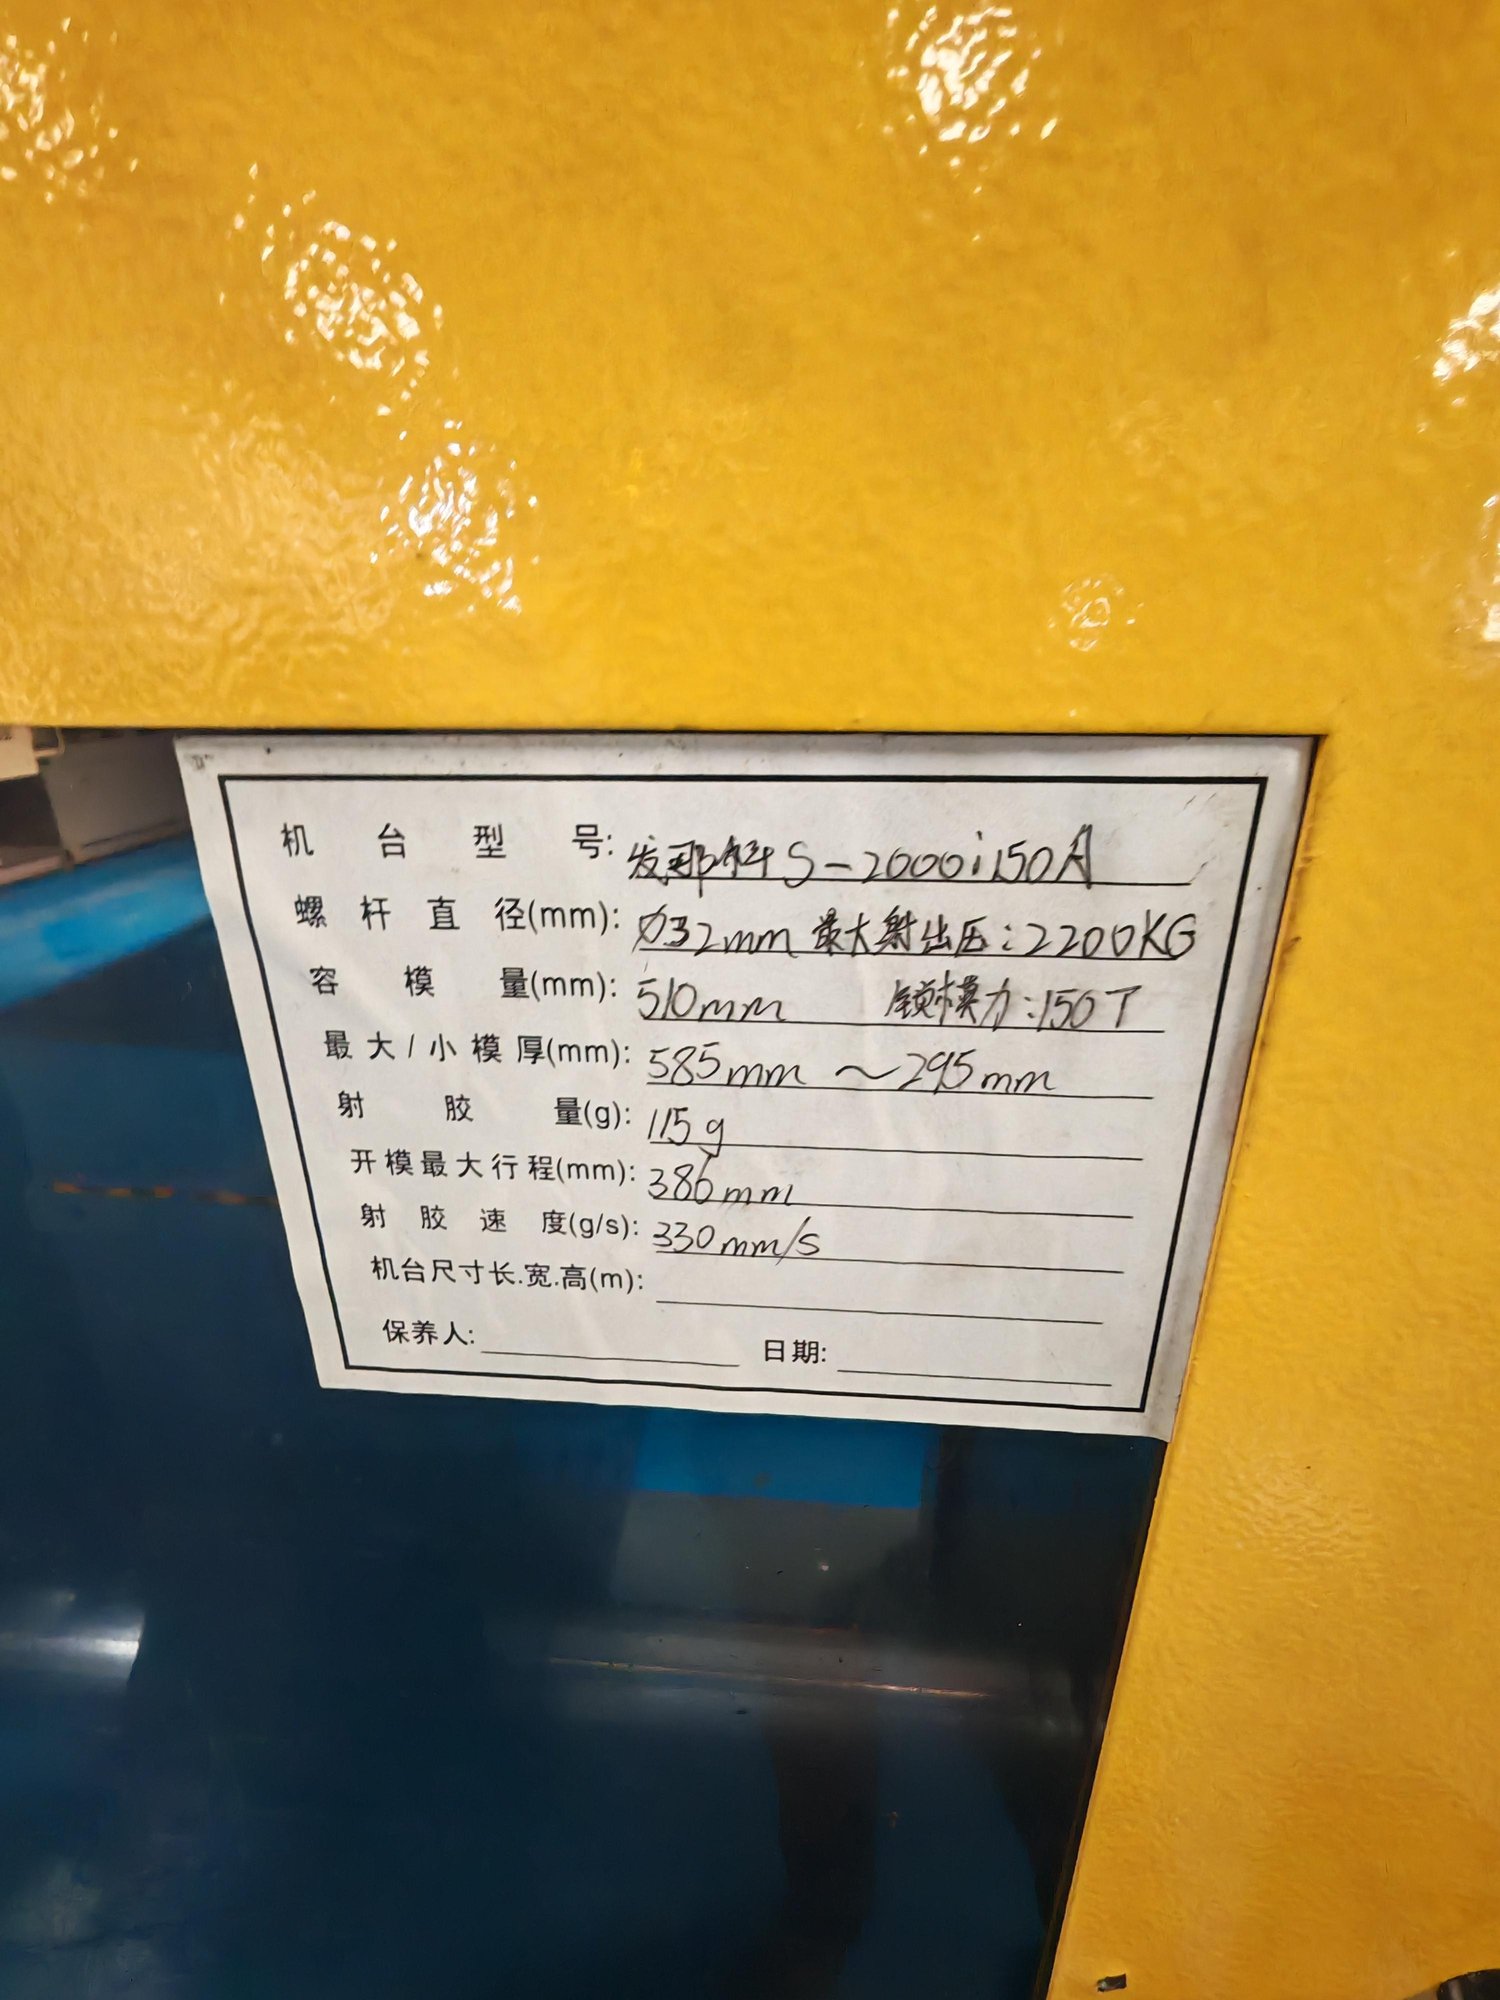 机台型号: 发那科S-2000i150A
螺杆直径(mm): Ø32mm 最大射出压:2200KG
容模量(mm): 510mm 锁模力:150T
最大/小模厚(mm): 585mm ~295mm
射胶量(g): 115g
开模最大行程(mm): 386mm
射胶速度(g/s): 330mm/s
机台尺寸长.宽.高(m):
保养人: 日期: